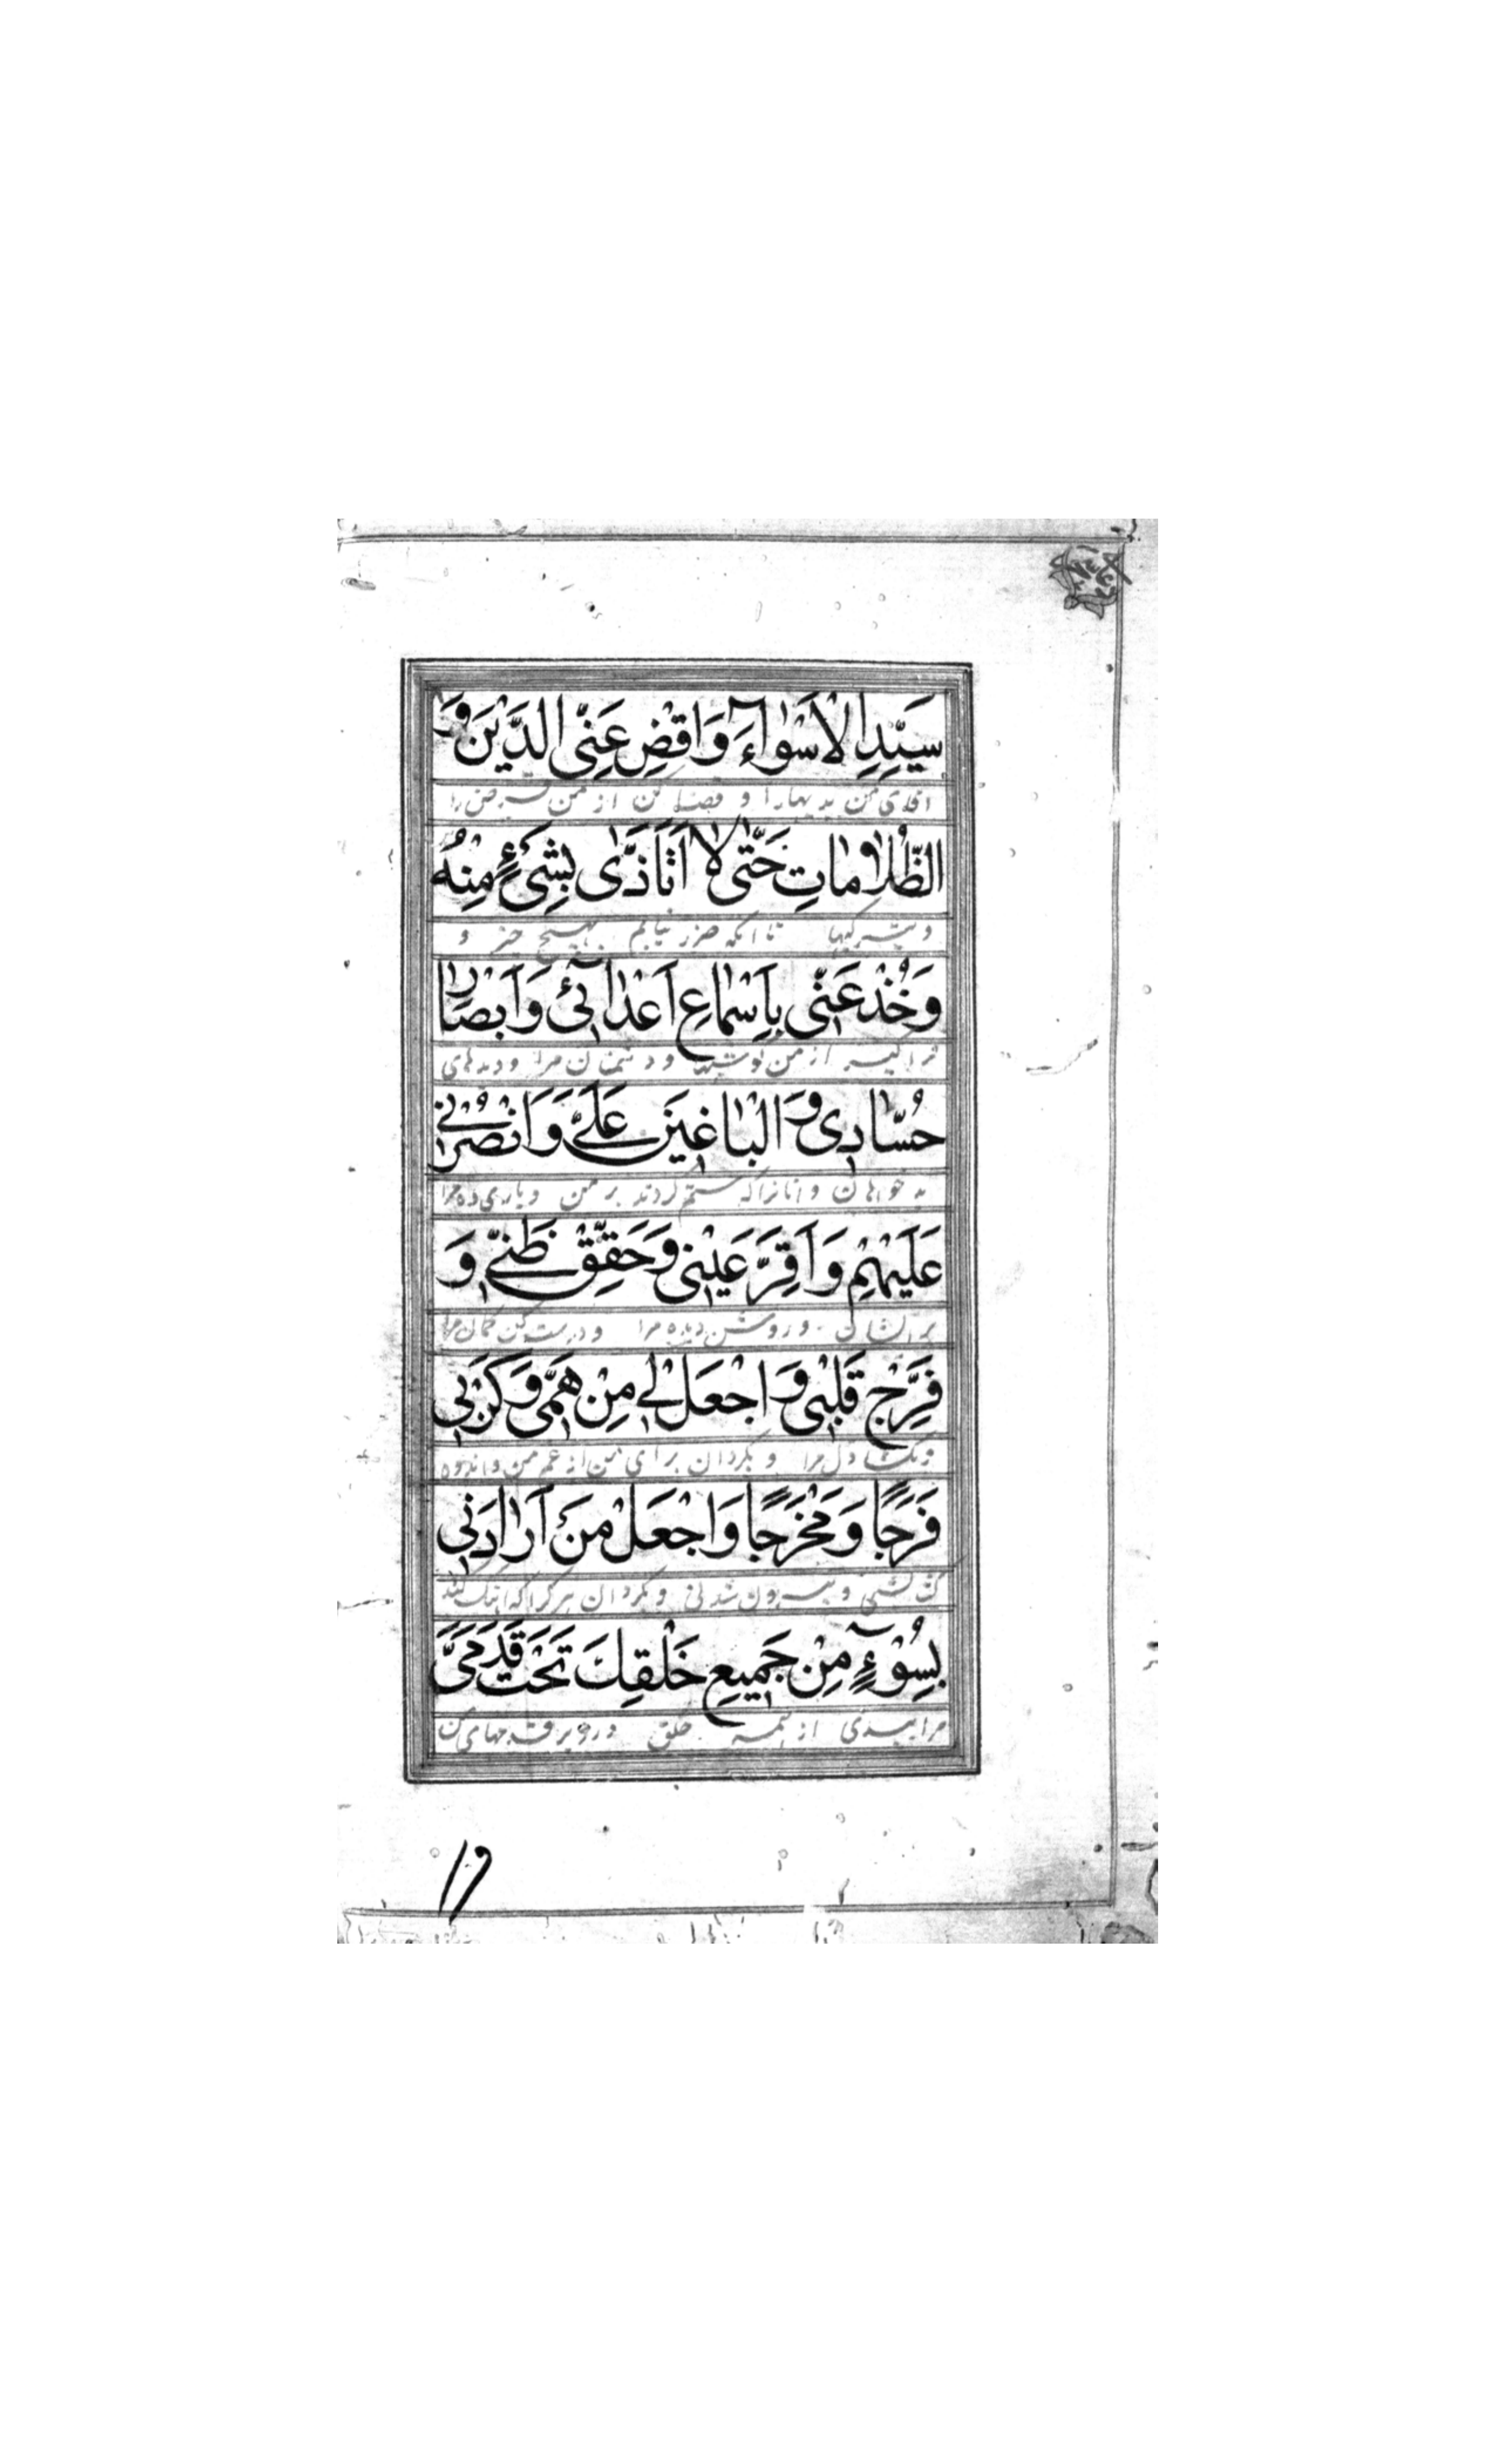 سَيِّدِ الْاَسْوٰاءَ وَاقْضِ عَنِّى الدَّيْنَ وَ
اقای من بدیهارا و قضا کن از من قرض را
الظُّلٰامٰاتِ حَتّٰى لٰا اَتَاَذّٰى بِشَىْءٍ مِنْهُ
و تیرگیها تا انکه ضرر نیابم بهیچ چیز و
وَخُذْ عَنّٰى بِاَسْمٰاعِ اَعْدٰائِى وَاَبْصٰارِ
فراگیر از من و دشمنان مرا و دیدهای
حُسّٰادِى وَالْبٰاغِينَ عَلَىَّ وَانْصُرْنِى
بد خواهان و انانراکه ستم کردند بر من و یاری ده مرا
عَلَيْهِمْ وَاَقِرَّ عَيْنِى وَحَقِّقْ ظَنِّى وَ
بر ایشان و روشن دیده مرا و درست کن کمان مرا
فَرِّجْ قَلْبِى وَاجْعَلْ لِى مِنْ هَمِّى وَكَرْبِى
دل مرا و بکردان برای من از غم من و اندوه
فَرَجًا وَمَخْرَجًا وَاجْعَلْ مَنْ اَرٰادَنِى
و بیرون شدنی و بکردان هرکرا که
بِسُوْءٍ مِنْ جَمِيعِ خَلْقِكَ تَحْتَ قَدَمَىَّ
مرا ببدی از همه خلق در زیر قدمهای من